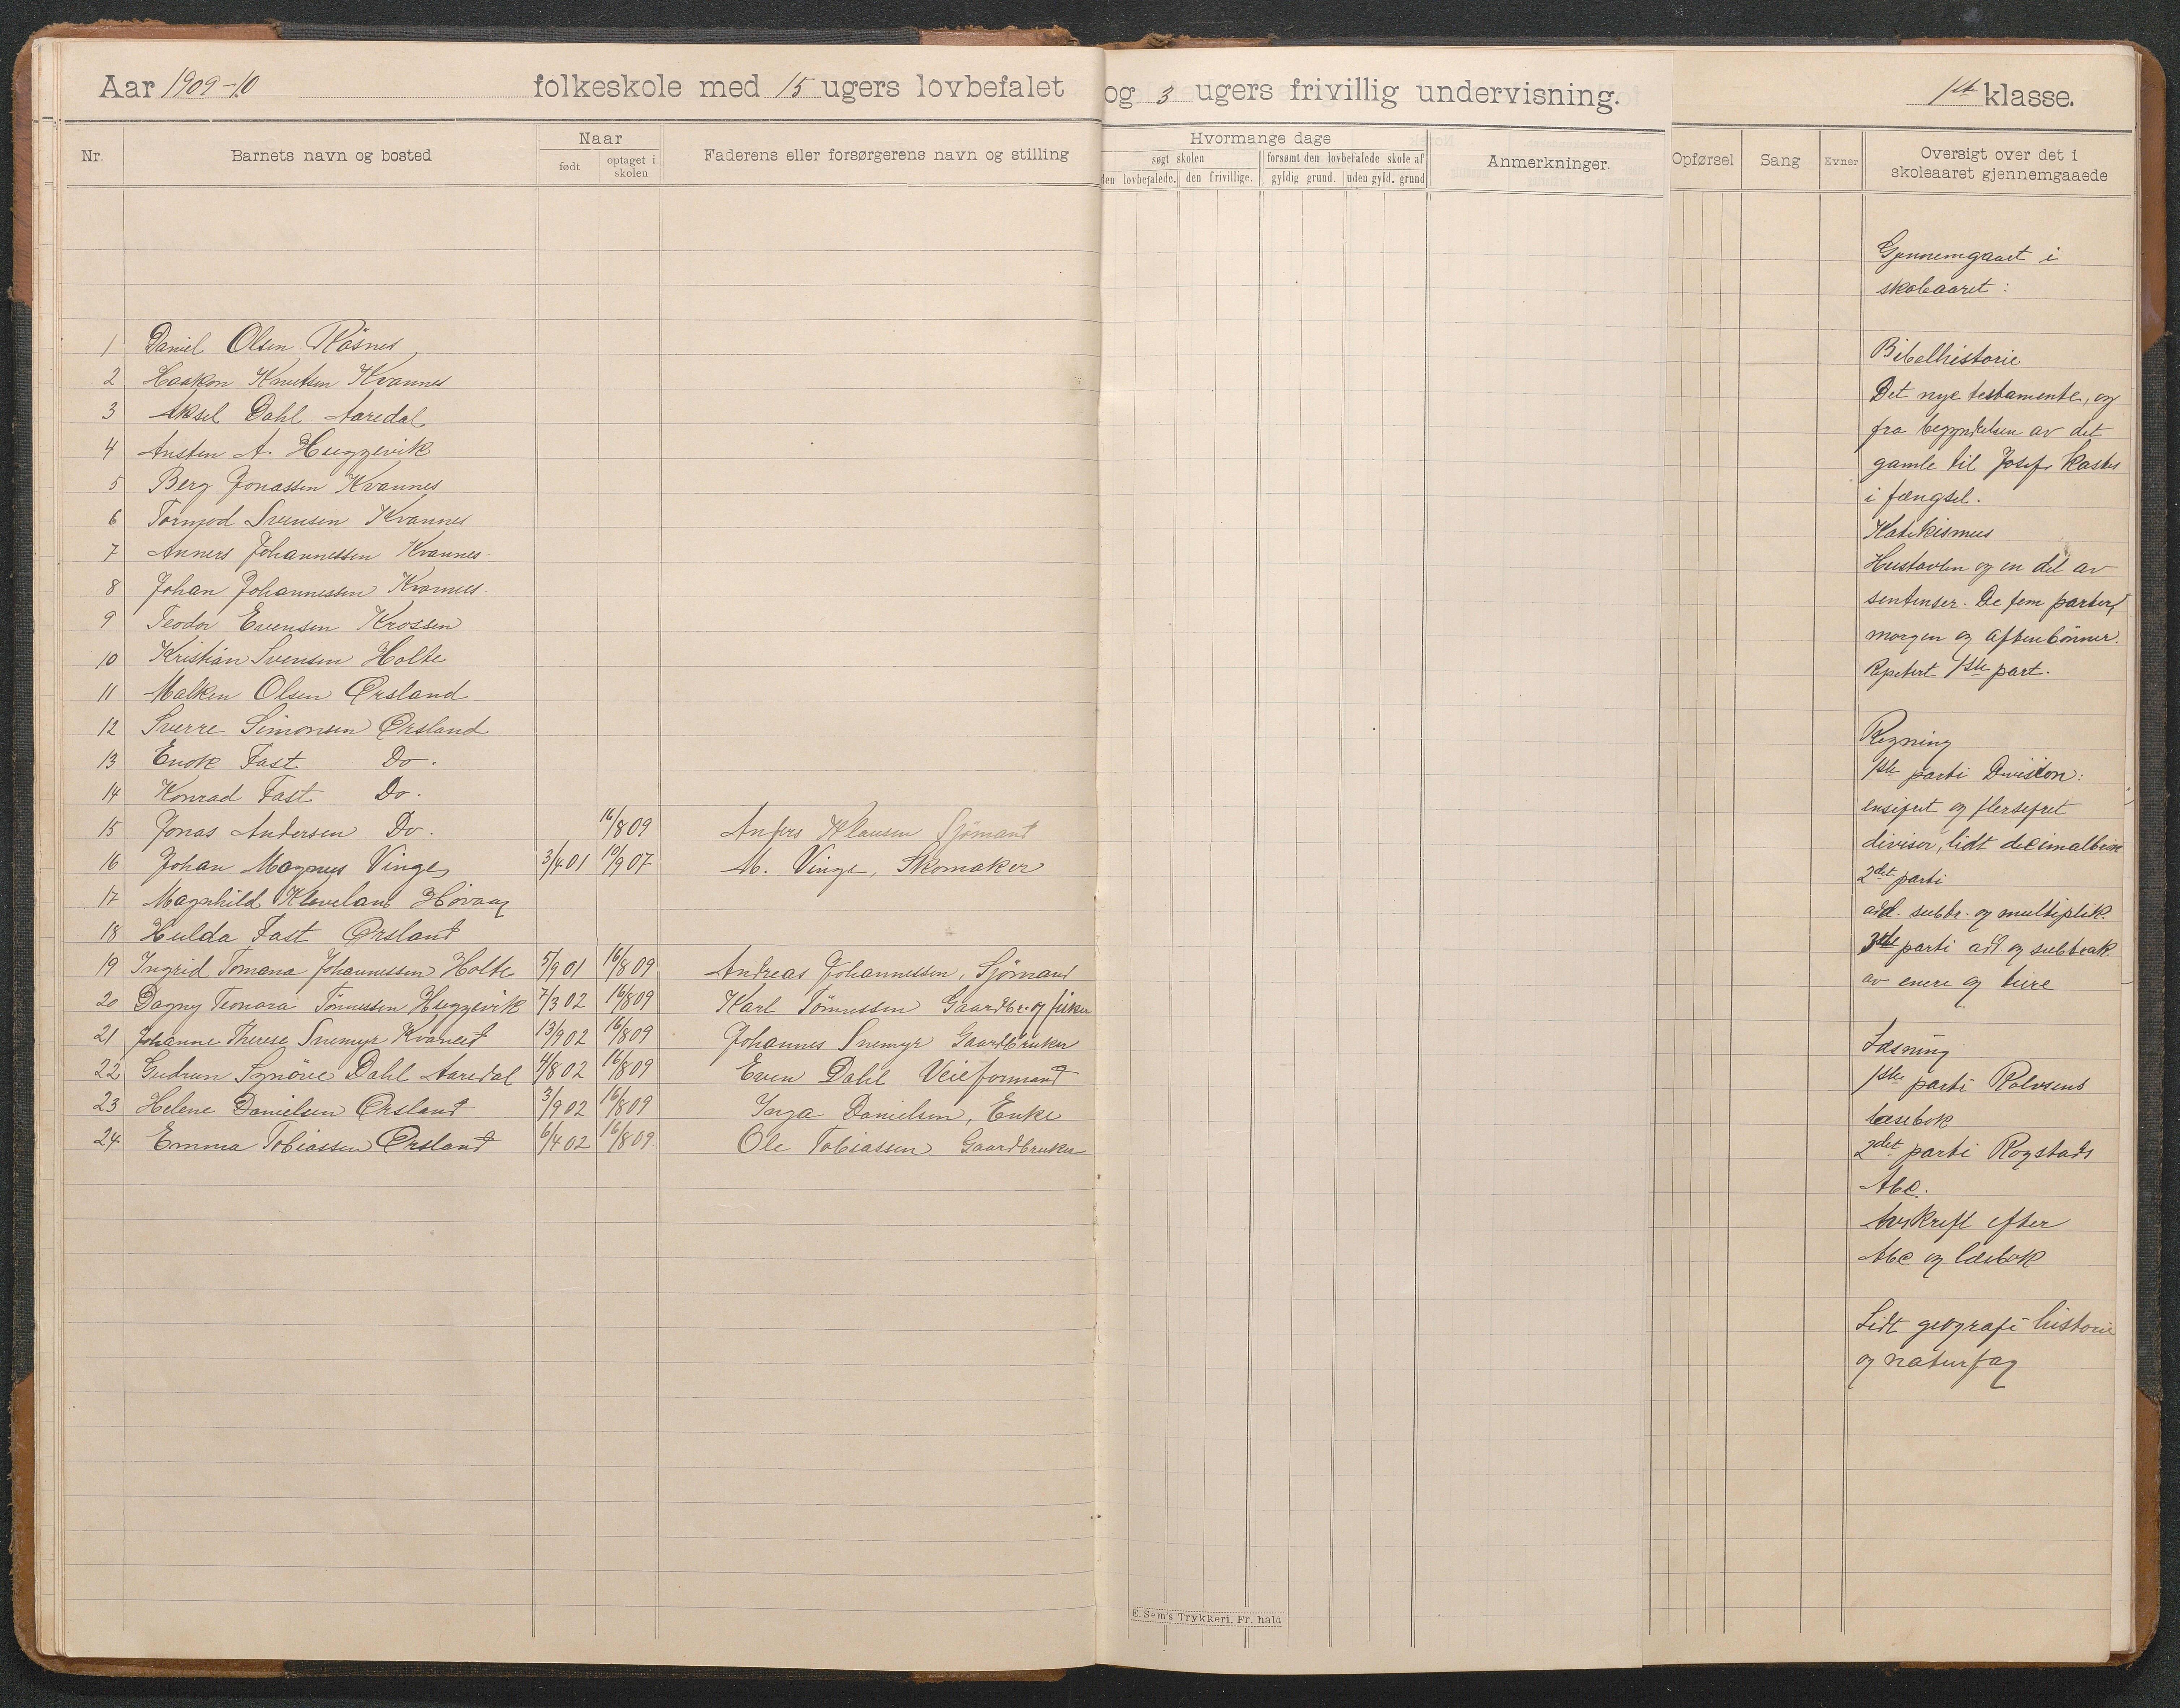 Aar 1909-10 folkeskole med 15 ugers lovbefalet og 3 ugers frivillig undervisning. 1ste klasse.
Nr. Barnets navn og bosted
Naar
født
optaget i skolen
Faderens eller forsørgerens navn og stilling
Hvormange dage
søgt skolen
den lovbefalede. den frivillige.
forsømt den lovbefalede skole af
gyldig grund. uden gyld. grund
Anmerkninger.
Opførsel
Sang
Evner
Oversigt over det i
skoleaaret gjennemgaaede
1 Daniel Olsen Røsnes
2 Haakon Knutsen Kvannes
3 Aksel Dahl Aaredal
4 Austen A. Heggevik
5 Berg Jonassen Kvannes
6 Tormod Svensen Kvannes
7 Anners Johannessen Kvannes
8 Johan Johannessen Kvannes
9 Teodor Evensen Krossen
10 Kristian Svensen Holte
11 Malken Olsen Ørsland
12 Sverre Simonsen Ørsland
13 Enok Fast Do.
14 Konrad Fast Do.
15 Jonas Andersen Do. 16/8 09 Anders Klausen Sjømand
16 Johan Magnus Vinge 3/4 01 10/9 07 M. Vinge, Skomaker
17 Magnhild Høvaag
18 Hulda Fast Ørsland
19 Ingrid Tomana Johannessen Holte 5/9 01 16/8 09 Andreas Johannessen, Sjømand
20 Dagny Teonora Tönnessen Heggevik 7/3 02 16/8 09 Karl Tönnessen Gaardbr. og fisker
21 Johanne Therese Snemyr 13/9 02 16/8 09 Johannes Snemyr Gaardbruker
22 Gudrun Synöve Dahl Aaredal 4/8 02 16/8 09 Even Dahl Veieformand
23 Helene Danielsen Ørsland 3/9 02 16/8 09 Inga Danielsen, Enke
24 Emma Tobiassen Ørsland 6/4 02 16/8 09 Ole Tobiassen Gaardbruker
Gjennemgaaet i
skoleaaret:
Bibelhistorie
Det nye testamente, og
fra begyndelsen av det
gamle til Josef kastes
i fængsel.
Katekismus
Hustavlen og en del av
sentenser. De fem parter,
morgen og aftenbønner.
Repetert 1ste part.
Regning
1ste parti Division:
ensifret og flersifret
divisor, lidt decimalbrøk
2det parti
add. subtr. og multiplik.
3dje parti add og subtrak.
av enere og tiere
Læsning
1ste parti Rolvsens
læsebok
2det parti Rogstads
Abc.
Avskrift efter
Abc og læsbok
Lidt geografi historie
og naturfag
E. Sem's Trykkeri, Fr. hald